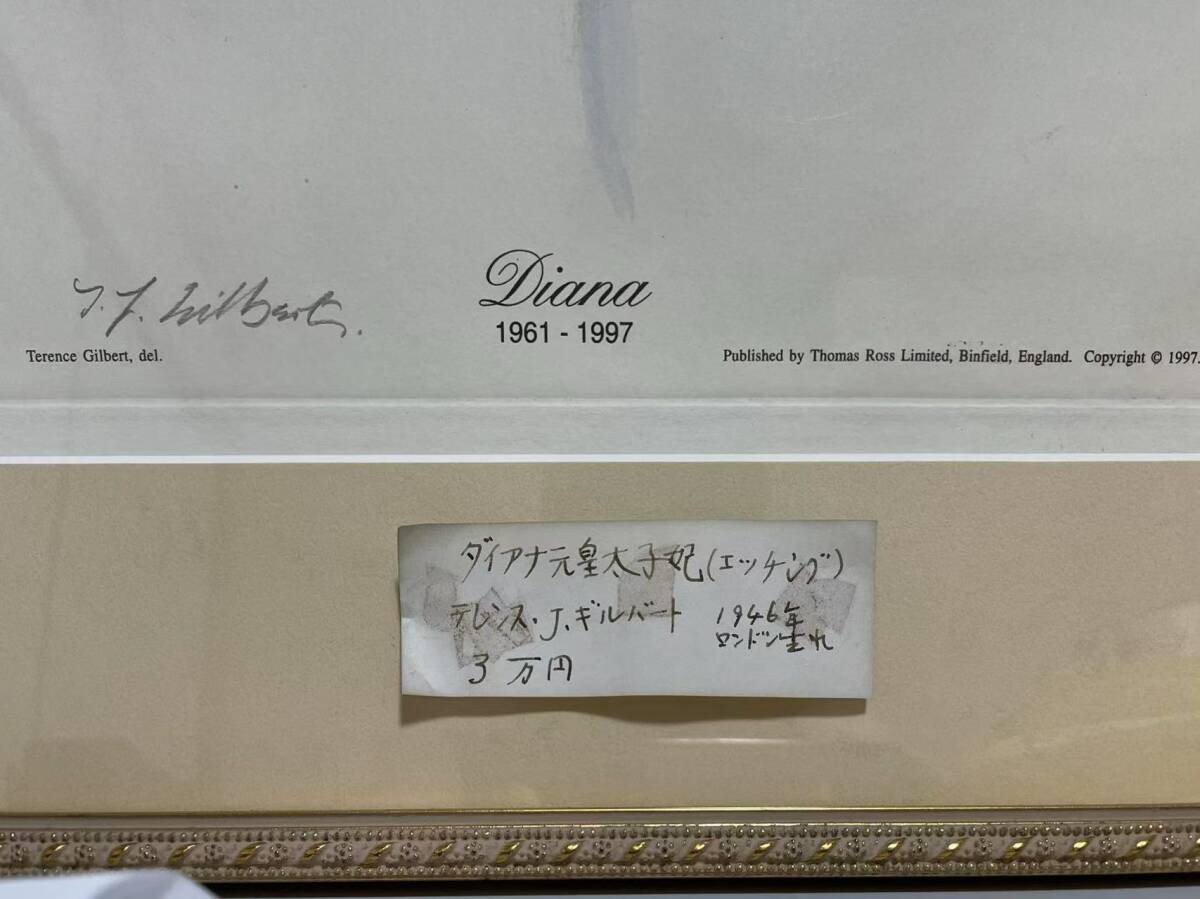 T. J. Gilbert.
Diana
1961 - 1997
Terence Gilbert, del.
Published by Thomas Ross Limited, Binfield, England. Copyright © 1997.
ダイアナ元皇太子妃(エッチング)
テレンス・J.ギルバート 1946年
ロンドン生れ
3万円